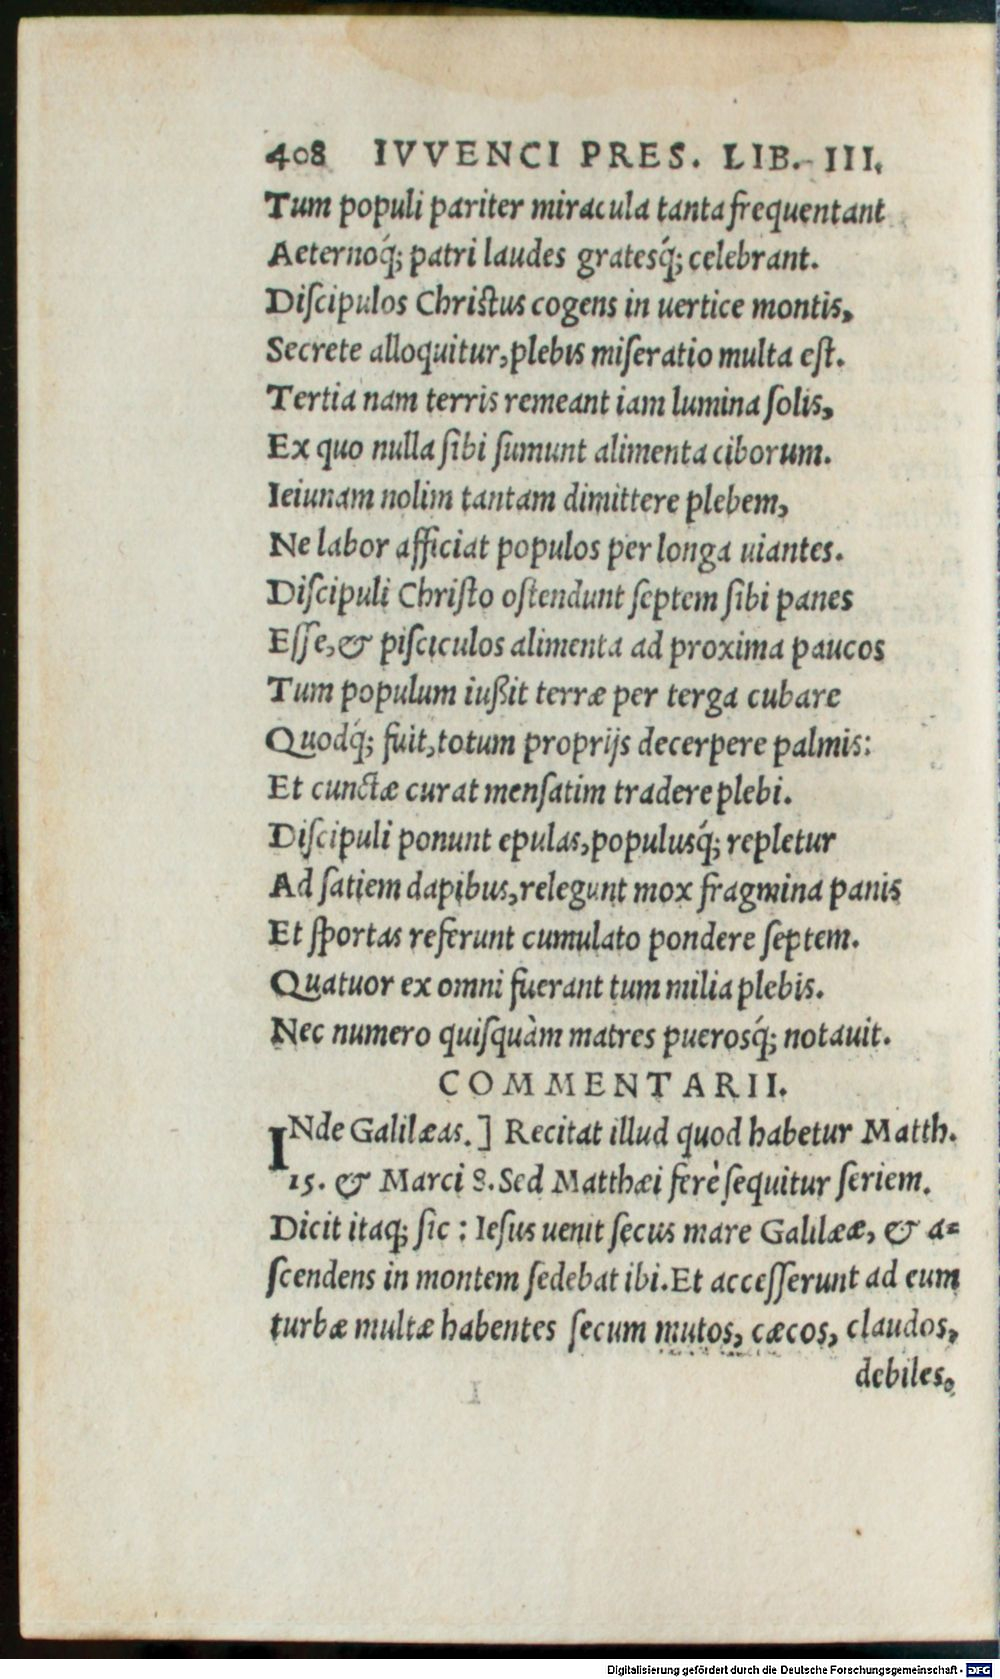 408 IVVENCI PRES. LIB. III.
Tum populi pariter miracula tanta frequentant
Aeternoq́; patri laudes gratesq́; celebrant.
Diſcipulos Chriſtus cogens in uertice montis,
Secrete alloquitur, plebis miſeratio multa eſt.
Tertia nam terris remeant iam lumina ſolis,
Ex quo nulla ſibi ſumunt alimenta ciborum.
Ieiunam nolim tantam dimittere plebem,
Ne labor afficiat populos per longa uiantes.
Diſcipuli Chriſto oſtendunt ſeptem ſibi panes
Eſſe, & piſciculos alimenta ad proxima paucos
Tum populum iußit terræ per terga cubare
Quodq́; fuit, totum proprijs decerpere palmis:
Et cunctæ curat menſatim tradere plebi.
Diſcipuli ponunt epulas, populusq́; repletur
Ad ſatiem dapibus, relegunt mox fragmina panis
Et ſportas referunt cumulato pondere ſeptem.
Quatuor ex omni fuerant tum milia plebis.
Nec numero quiſquàm matres puerosq́; notauit.
COMMENTARII.
INde Galilæas.] Recitat illud quod habetur Matth.
15. & Marci 8. Sed Matthæi ferè ſequitur ſeriem.
Dicit itaq; ſic: Ieſus uenit ſecus mare Galilææ, & a=
ſcendens in montem ſedebat ibi. Et acceſſerunt ad eum
turbæ multæ habentes ſecum mutos, cæcos, claudos,
debiles.
Digitalisierung gefördert durch die Deutsche Forschungsgemeinschaft - DFG